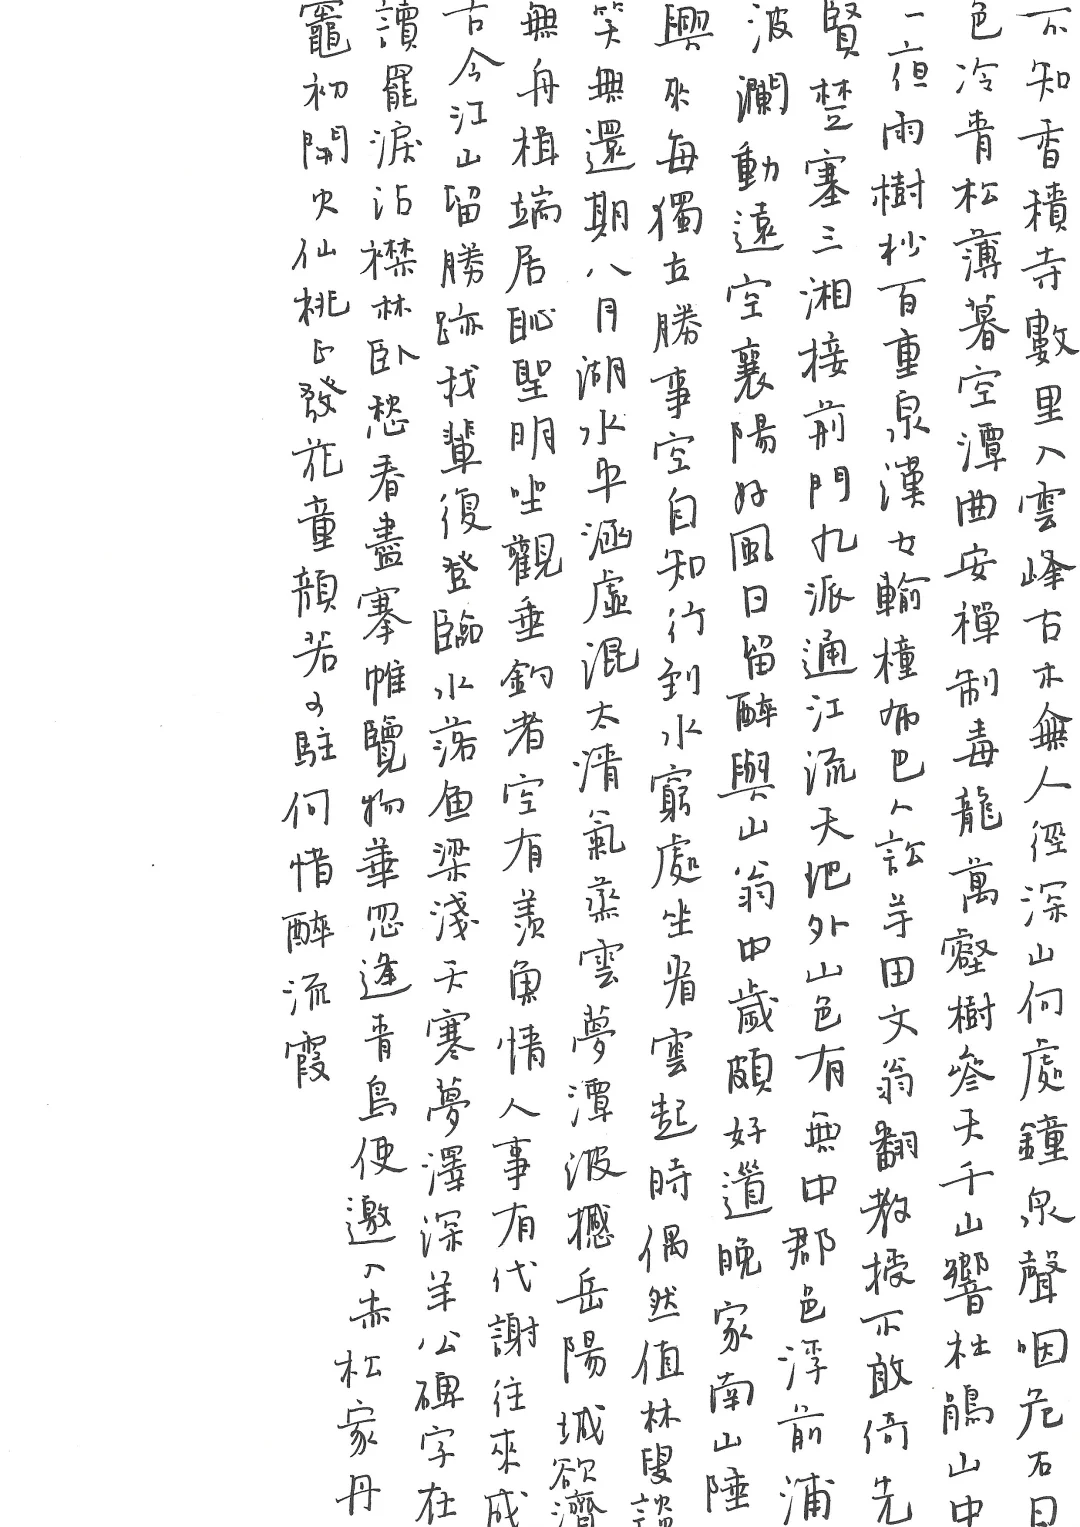 不知香積寺數里入雲峰古木無人徑深山何處鐘泉聲咽危石日
色冷青松薄暮空潭曲安禪制毒龍萬壑樹參天千山響杜鵑山中
一夜雨樹杪百重泉漢女輸橦布巴人訟芋田文翁翻教授不敢倚先
賢楚塞三湘接荊門九派通江流天地外山色有無中郡邑浮前浦
波瀾動遠空襄陽好風日留醉與山翁中歲頗好道晚家南山陲
興來每獨去勝事空自知行到水窮處坐看雲起時偶然值林叟談
笑無還期八月湖水平涵虛混太清氣蒸雲夢澤波撼岳陽城欲濟
無舟楫端居恥聖明坐觀垂釣者空有羨魚情人事有代謝往來成
古今江山留勝跡我輩復登臨水落魚梁淺天寒夢澤深羊公碑字在
讀罷淚沾襟林臥愁春盡搴帷覽物華忽逢青鳥使邀入赤松家丹
竈初開火仙桃正發花童顏若可駐何惜醉流霞